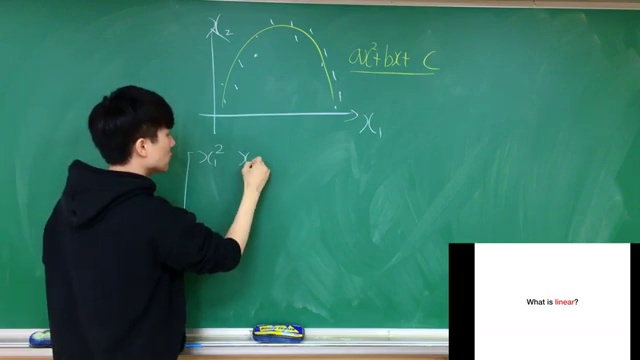 x₂
ax²+bx+ c
x₁
x₁² x
What is linear?